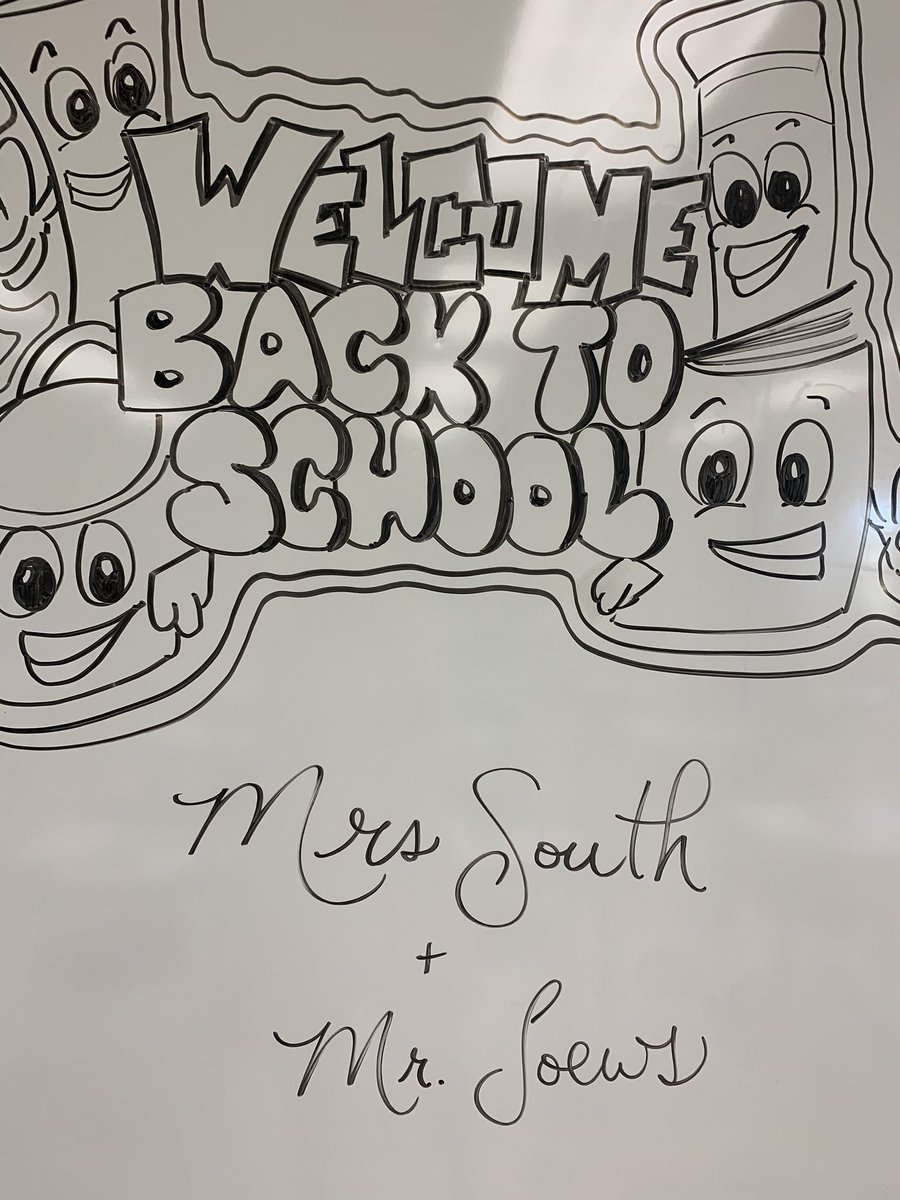 WELCOME
BACK TO
SCHOOL
Mrs South
+
Mr.